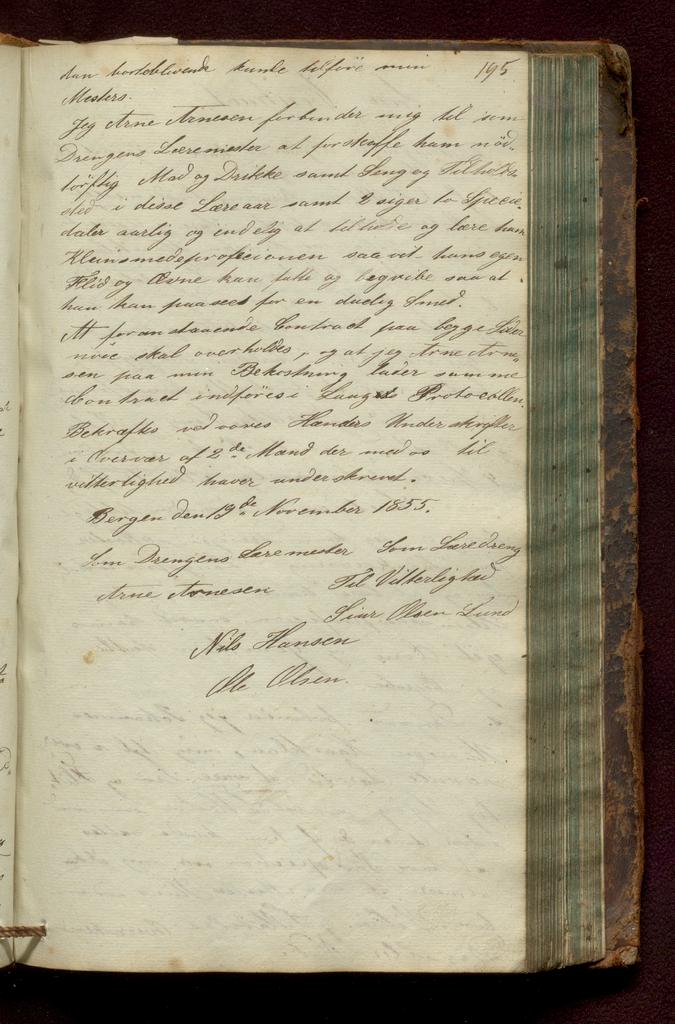 195.
dan bortoblivende kunde tilföie min
Mesters.
Jeg Arne Arnesen forbinder mig til som
Drengens Læremester at forskaffe ham nød-
törftig Mad og Drikke samt Seng og Tilholds
sted i disse Læreaar samt 2 siger to Specie-
daler aarlig og endelig at tilholde og lære ham
Kleinsmedeprofesionen saavit hans egen
Flid og Ævne kan fatte og begribe saa at
han kan paasees for en duelig Smed.
At foranstaaende Contract paa begge Sider
nöie skal overholdes, og at jeg Arne Arne-
sen paa min Bekostning lader samme
Contract indföres i Laugets Protocollen.
Bekræftes ved vores Hænders Underskrifter
i Overvær af 2de Mænd der med os til
vitterlighed haver underskrevet.
Bergen den 19de November 1855.
Som Drengens Læremester Som Læredreng
Arne Arnesen Til Vitterlighed
Siur Olsen Lund
Nils Hansen
Ole Olsen.